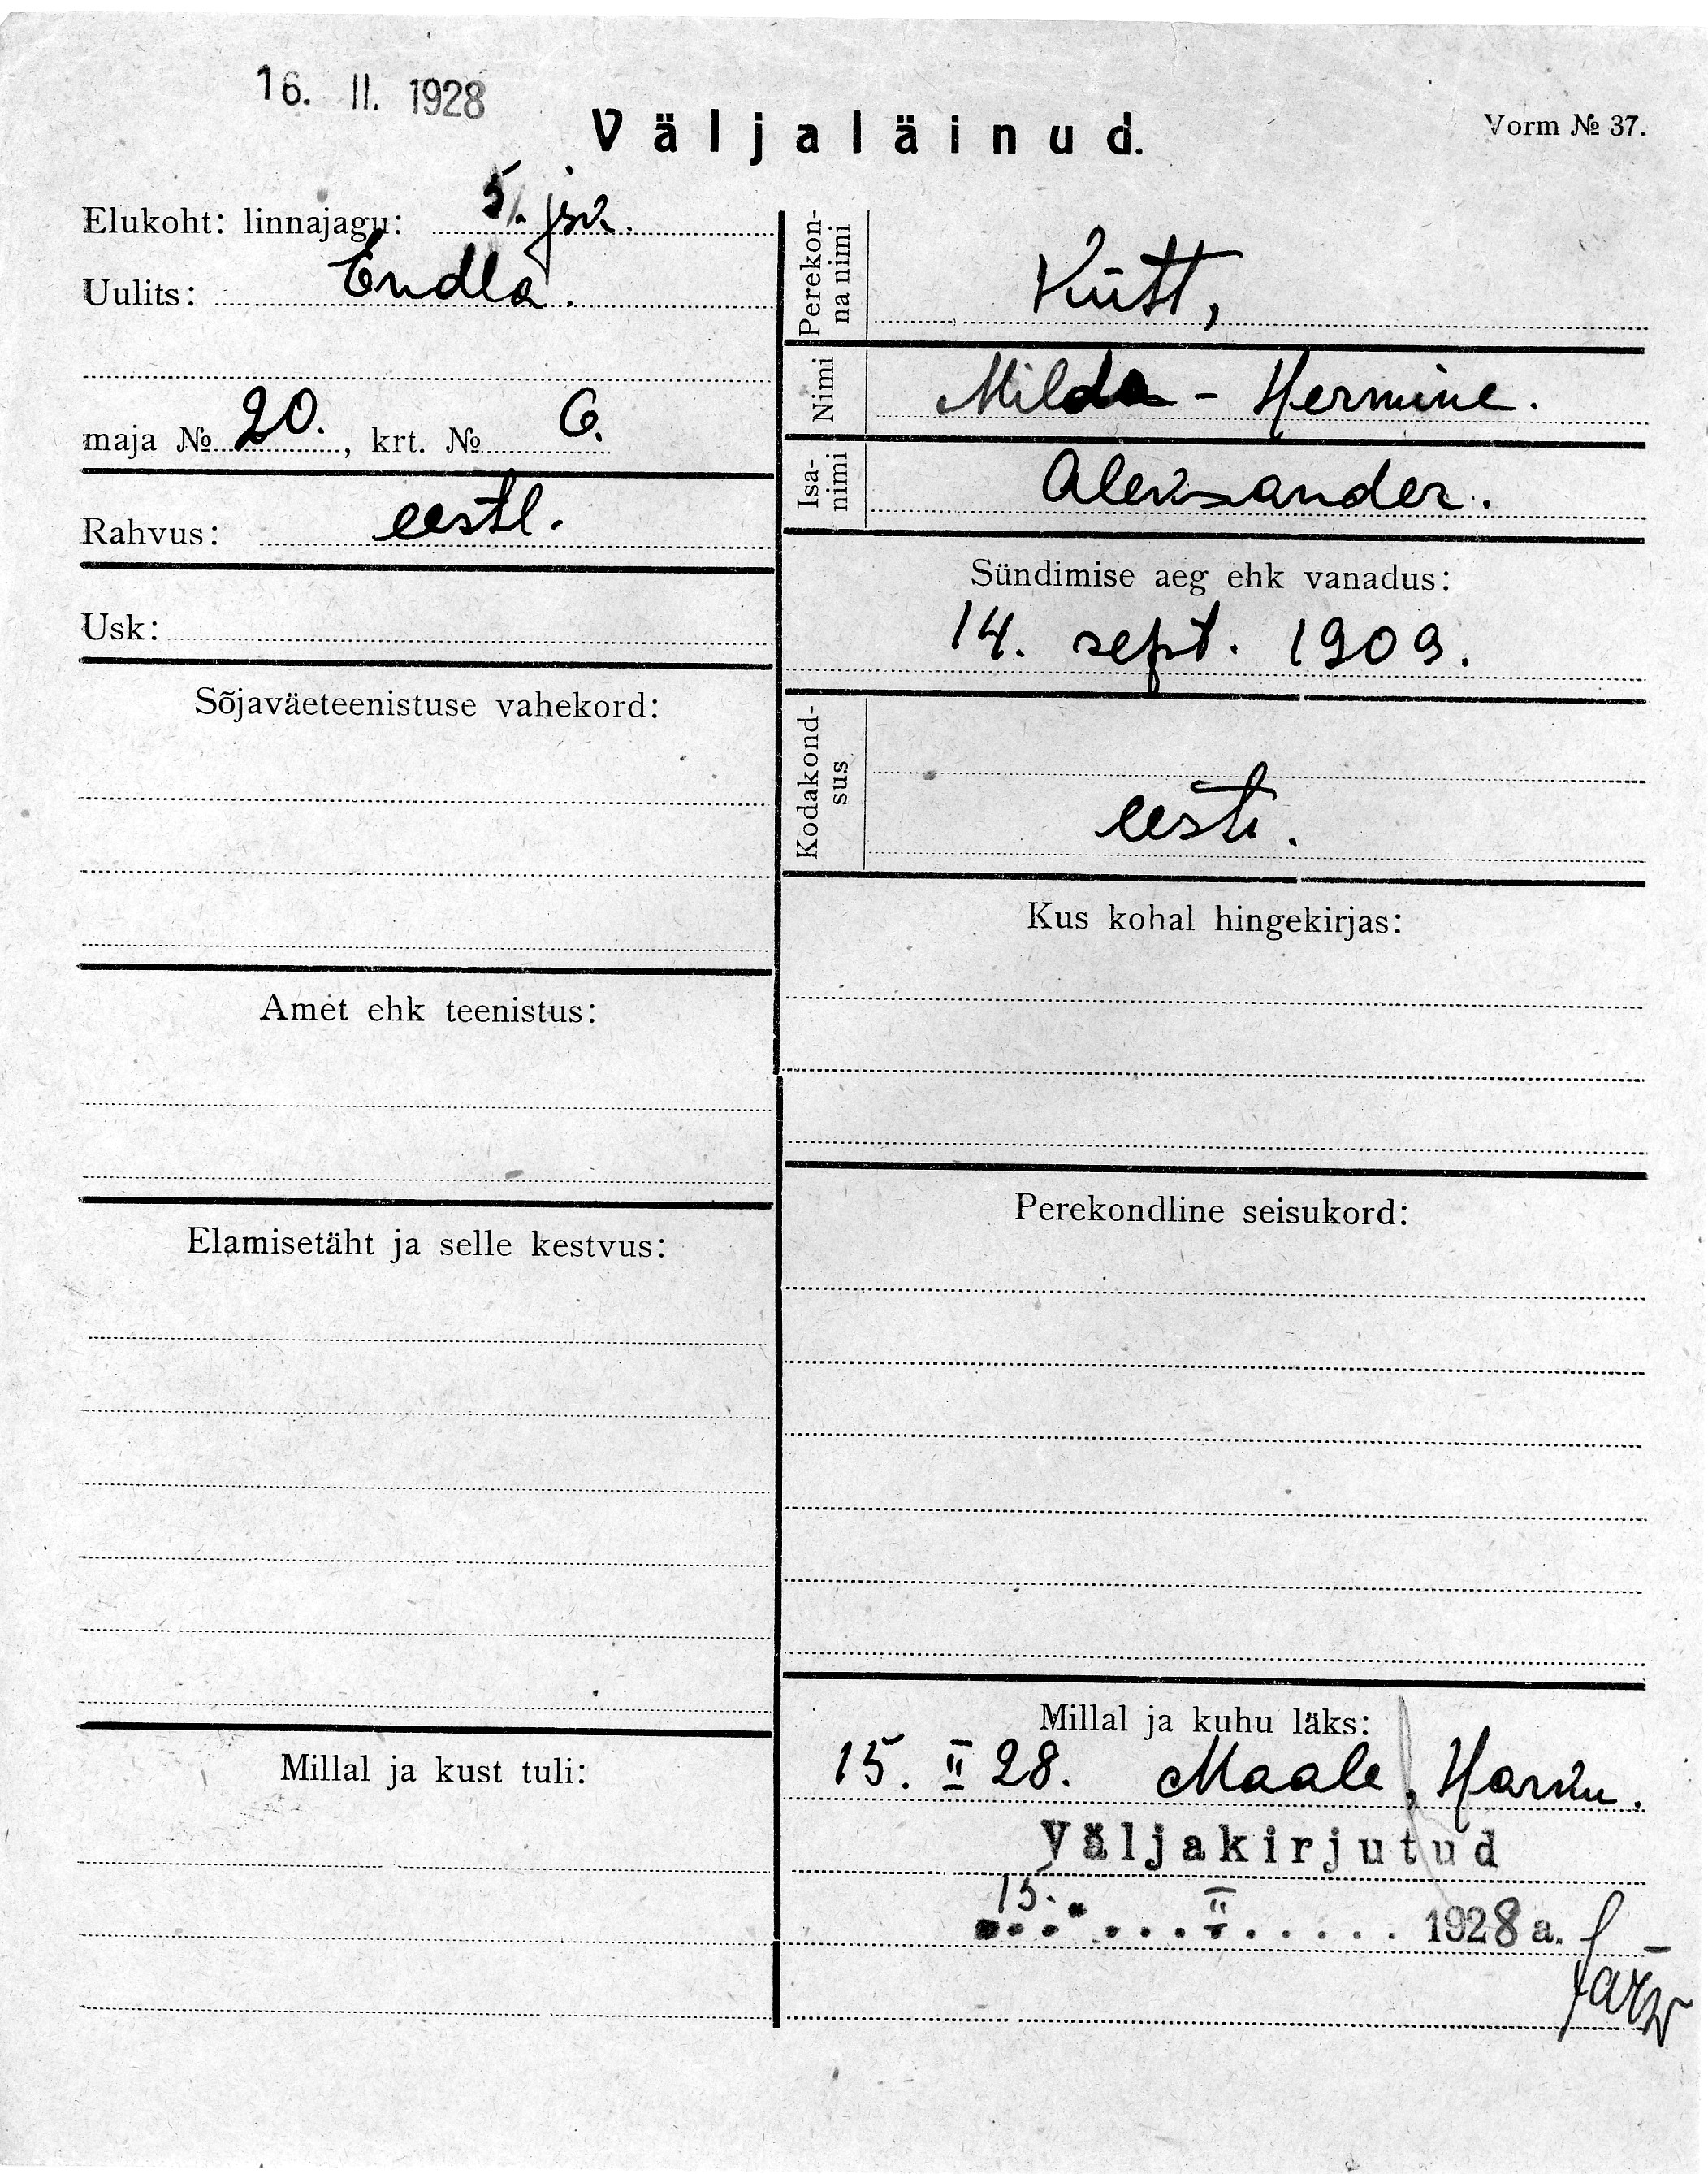 16. II. 1928
Väljaläinud.
Vorm № 37.
Elukoht: linnajagu: 5. jsk.
Uulits: Endla.
maja № 20., krt. № 6.
Rahvus: eestl.
Usk:
Sõjaväeteenistuse vahekord:
Amet ehk teenistus:
Elamisetäht ja selle kestvus:
Millal ja kust tuli:
Perekon-
na nimi
Kütt,
Nimi
Milda - Hermine.
Isa-
nimi
Aleksander.
Sündimise aeg ehk vanadus:
14. sept. 1909.
Kodakond-
sus
eesti.
Kus kohal hingekirjas:
Perekondline seisukord:
Millal ja kuhu läks:
15. II 28. Maale, Harku.
Väljakirjutud
15. II 1928 a.